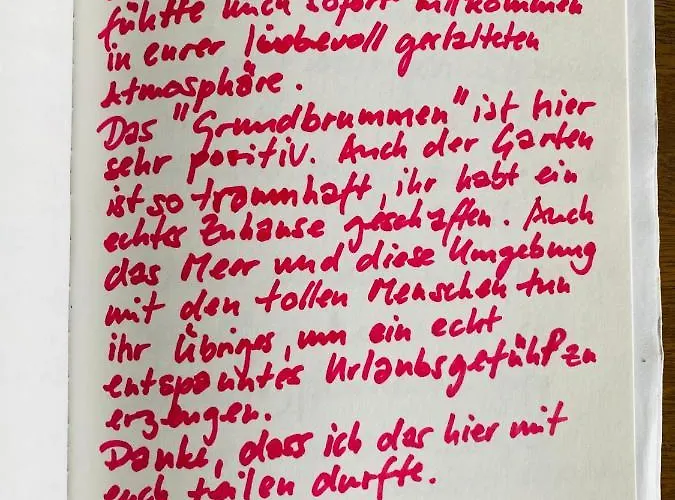 fühlte mich sofort willkommen
in eurer liebevoll gestalteten
Atmosphäre.
Das "Grundbrummen" ist hier
sehr positiv. Auch der Garten
ist so traumhaft, ihr habt ein
echtes Zuhause geschaffen. Auch
das Meer und diese Umgebung
mit den tollen Menschen tun
ihr Übriges, um ein echt
entspanntes Urlaubsgefühl zu
erzeugen.
Danke, dass ich das hier mit
euch teilen durfte.